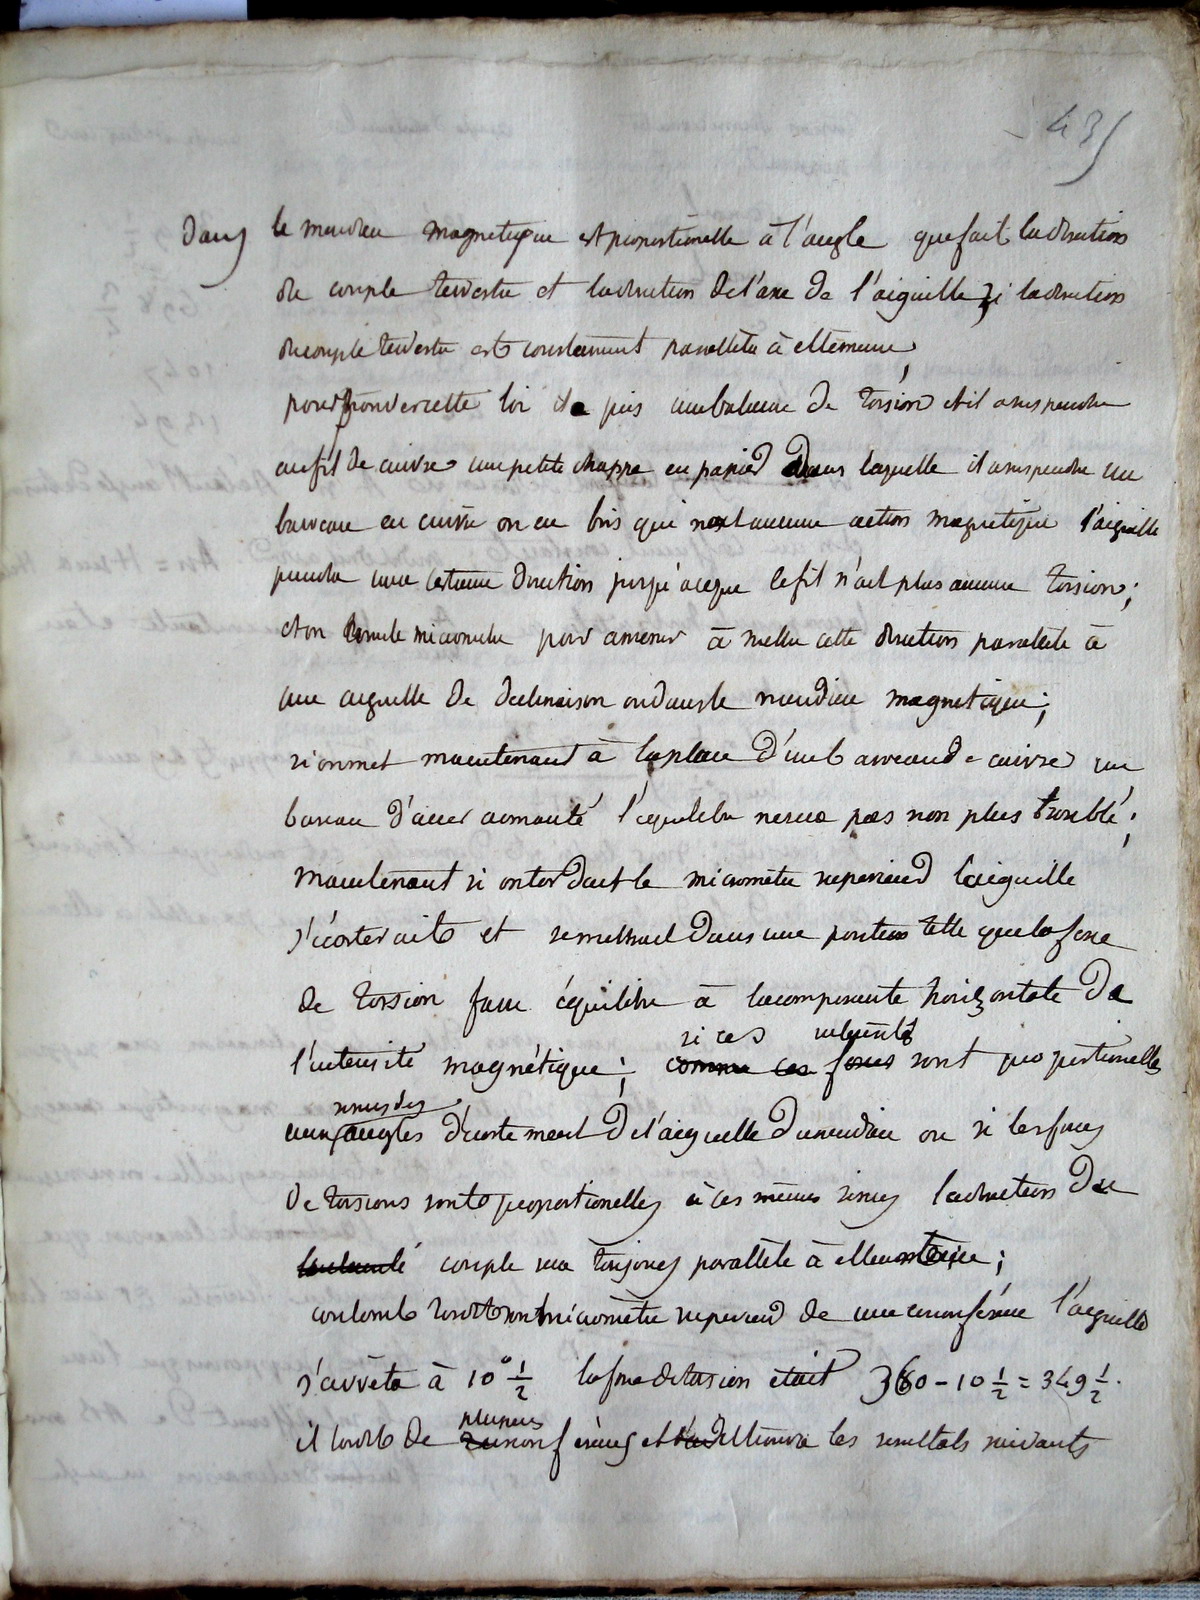 435
dans le meridien magnetique est proportionelle à l'angle que fait la direction
du couple terrestre et la direction de l'axe de l'aiguille si la direction
du couple terrestre est constamment parallele à elle meme,
pour prouver cette loi il a pris une balance de torsion et il a suspendu
au fil de cuivre une petite chappe en papier dans laquelle il a suspendu un
barreau en cuivre ou en bois qui n'ont aucune action magnetique l'aiguille
prendra une certaine direction jusqu'à ce que le fil n'ait plus aucune torsion;
et on tourne le micrometre pour amener à mettre cette direction parallele à
une aiguille de declinaison ou dans le meridien magnetique;
si on met maintenant à la place d'un barreau de cuivre un
bareau d'acier aimanté l'equilibre ne sera pas non plus troublé;
maintenant si on tordait le micrometre superieur l'aiguille
s'écarterait et se mettrait dans une position telle que la force
de torsion fasse équilibre à la composante horizontale de
si ces
l'intensité magnétique; comme ces forces sont proportionelles
sinus des
aux angles d'ecartement de l'aiguille du meridien ou si les forces
de torsions sont proportionelles à ces mêmes sinus la direction du
couple sera toujours parallèle à elle même;
coulomb tordit son micrometre superieur de une circonference l'aiguille
s'arrêta à 10° 1/2 la force de torsion était 360 - 10 1/2 = 349 1/2.
plusieurs
il tordit de circonferences et trouva les resultats suivants